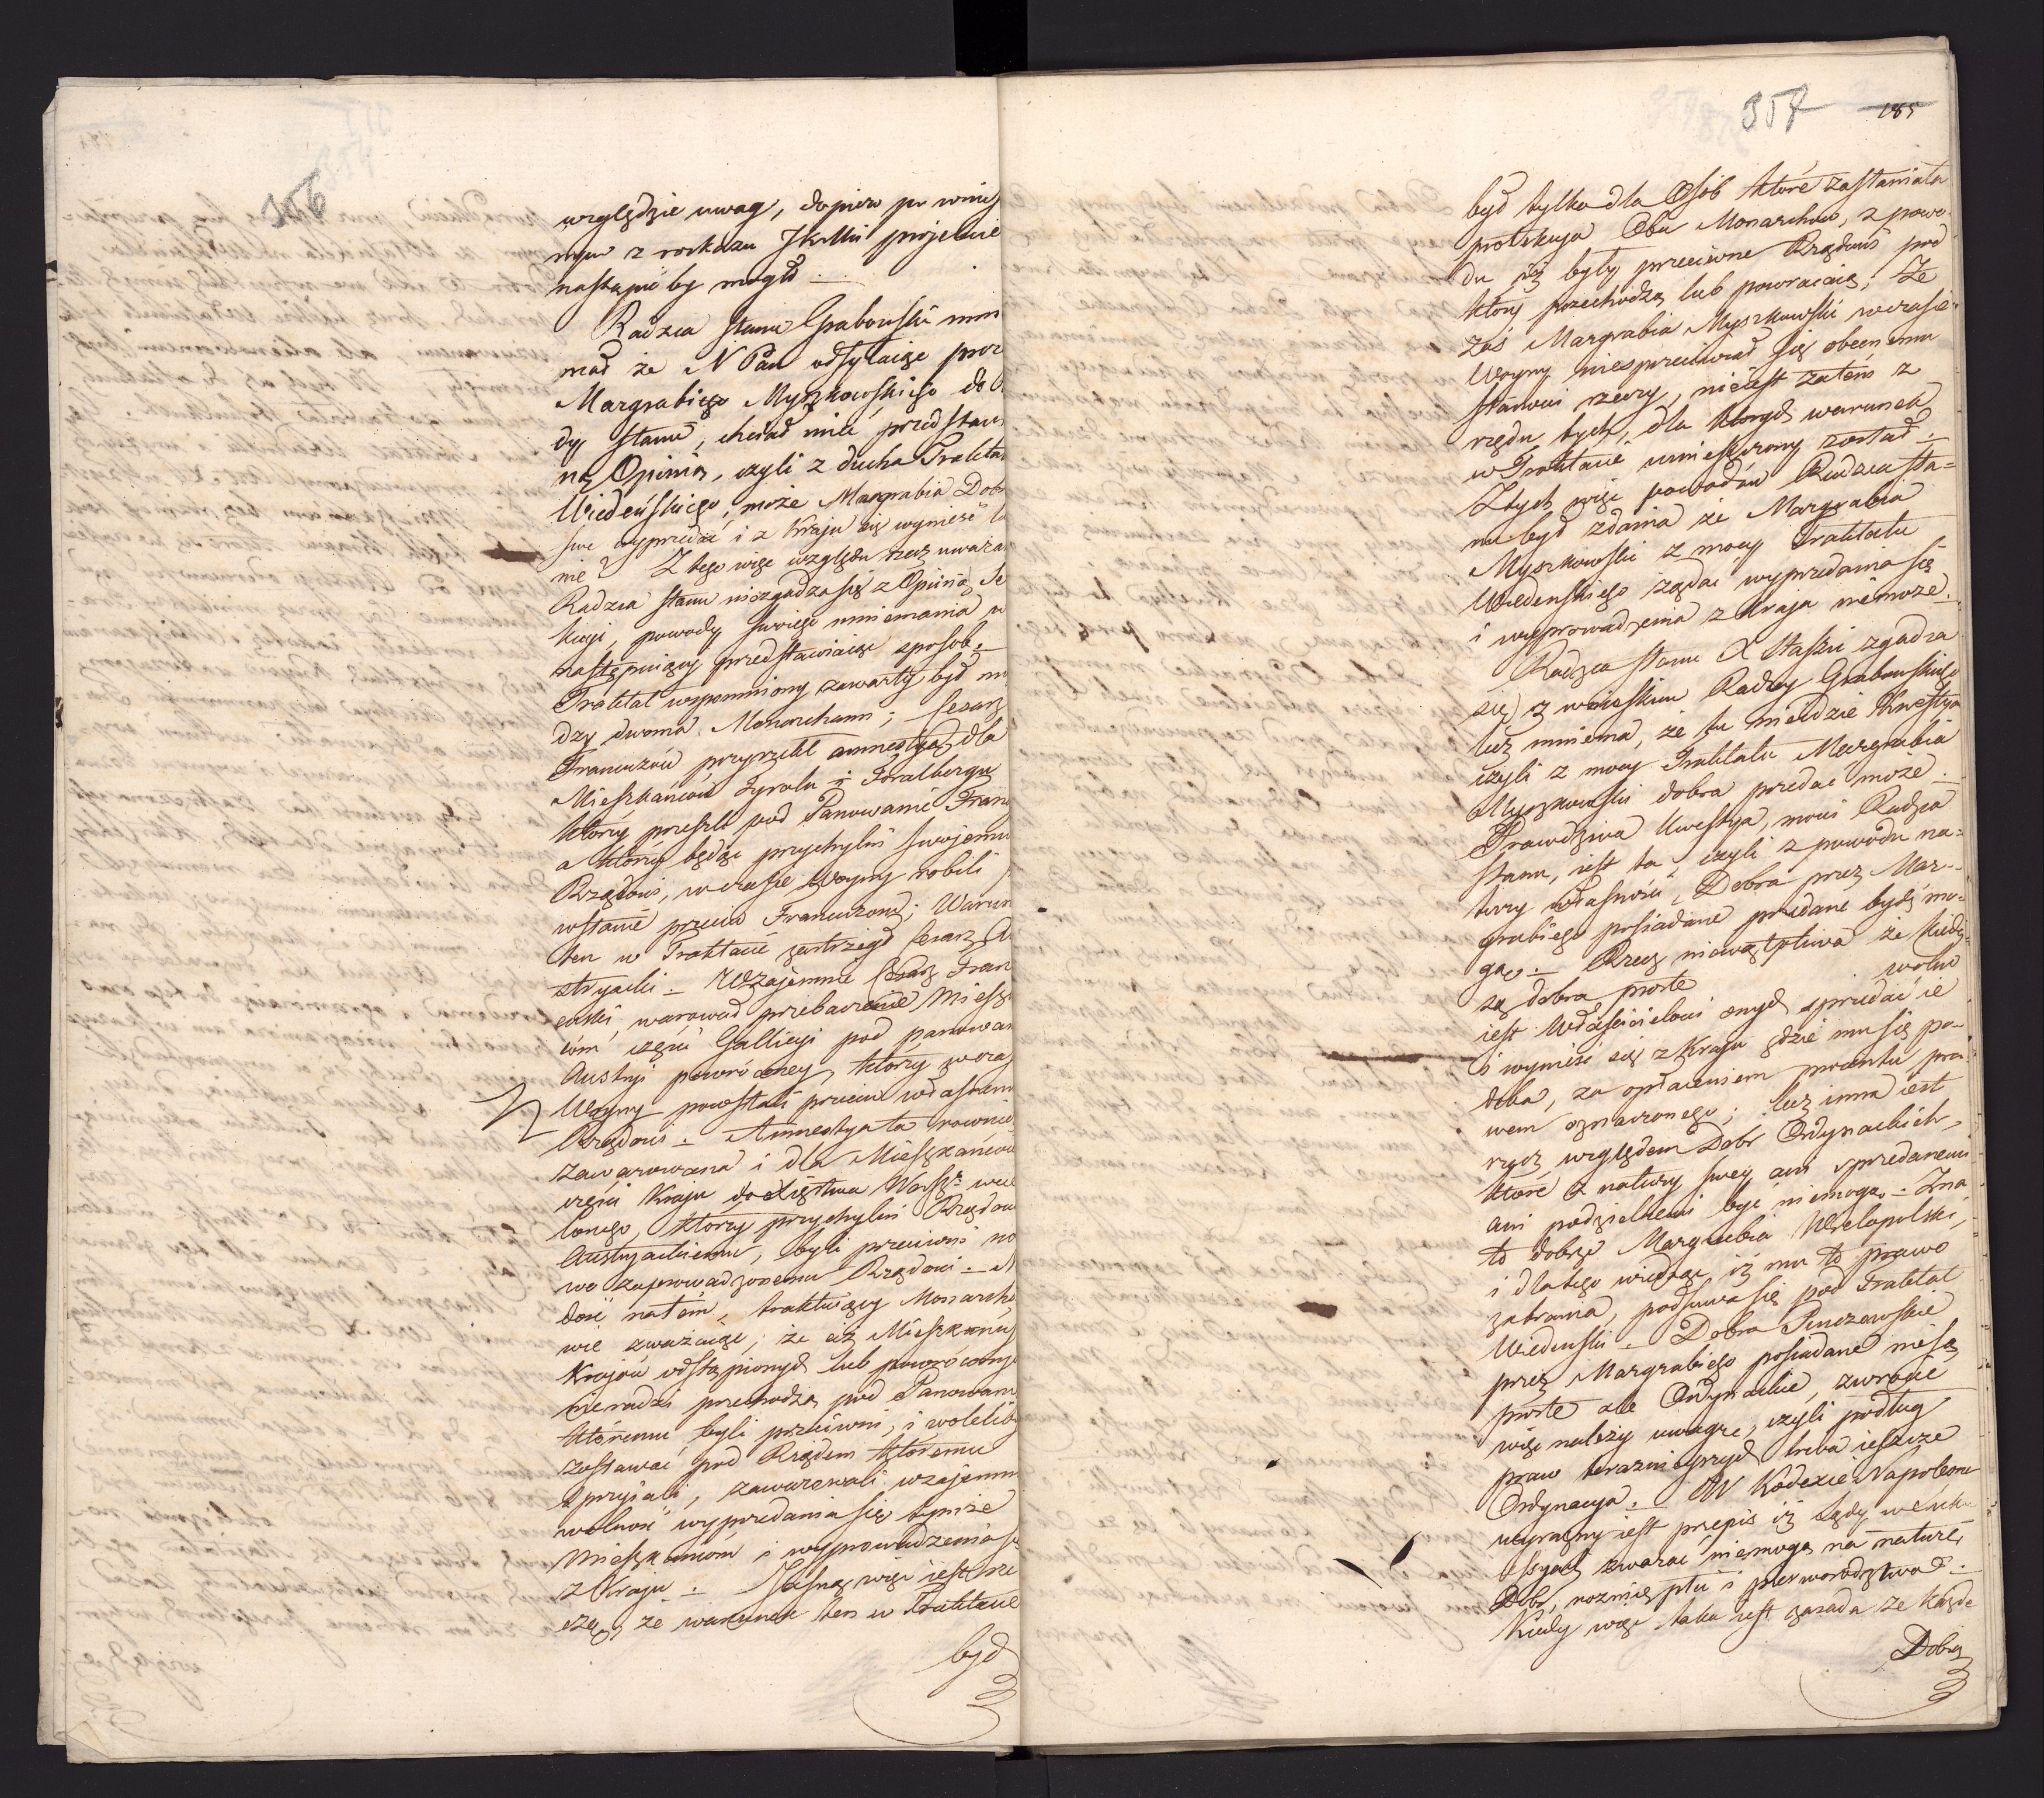 356
względzie uwag, dopiero po winiey
nym z rozkazu JKMci projekcie
nastąpić by mogło.
Radzca stanu Grabowski mnie
mał że N Pan odsyłaiąc proz
Margrabiego Myszkowskiego do R
dy stanu, chciał mieć przedstaw
ną Opinią, czyli z ducha Traktat
Wiedeńskiego, może Margrabia Dobr
swe wyprzedać i z Kraju się wynieść lu
nie? Z tego więc względu rzecz uważa
Radzca stanu niezgadza się z Opinią Se
kcyi, powody swoiego mniemania w
następuiący przedstawiaiąc sposób.
Traktat wspomniony zawarty był mi
dzy dwoma Monarchami; Cesarz
Francuzów przyrzekł amnestyą dla
Mieszkańców Tyrolu i Foralbergu
którzy przeszli pod Panowanie Franc
a którzy będąc przychylni swojemu
Rządowi, w czasie Woyny robili p
wstanie przeciw Francuzom; Warun
ten w Traktacie zastrzegł Cesarz Au
stryacki. Wzajemnie Cesarz Fran
cuski, warował przebaczenie Mieszk
com części Gallicyi pod panowan
Austryi powróconey, którzy w cza
Woyny powstali przeciw własnem
Rządowi. Amnestya ta rownie
zawarowana i dla Mieszkańców
części Kraju do Xięstwa Warszo wcie
lonego, którzy przychylni Rządow
Austryackiemu, byli przeciwni no
wo zaprowadzonemu Rządowi. N
dość natém, traktuiący Monarcho
wie zważaiąc, że ciż Mieszkańcy
Kraiów odstąpionych lub powrócony
nieradzi przechodzą pod Panowan
któremu byli przeciwni, i woleliby
zostawać pod Rządem któremu
sprzyiali, zawarowali wzajemn
wolność wyprzedania się tymże
Mieszkańcom i wyprowadzenia si
z Kraju. Jasną więc iest rze
czą, że warunek ten w Traktacie
był
357
185
był tylko dla Osób które zasłaniała
protekcya Obu Monarchów, z powo
du iż były przeciwne Rządowi pod
który przechodzą lub powracaią, Że
zaś Margrabia Myszkowski w czasie
Woyny niesprzeciwiał się obecnemu
stanowi rzeczy, nieiest zatém z
rzędu tych, dla których warunek
w Traktacie umieszczony został.
Z tych więc powodów Radzca sta=
nu był zdania że Margrabia
Myszkowski z mocy Traktatu
Wiedenskiego żądać wyprzedania się
i wyprowadzenia z Kraju niemoże.
Radzca stanu X Staszic zgadza
się z wnioskiem Radzcy Grabowskiego
lecz mniema, że tu nieidzie Kwestya
czyli z mocy Traktatu Margrabia
Myszkowski dobra przedać może.
Prawdziwa Kwestya, mówi Radzca
stanu, iest ta, czyli z powodu na=
tury własności, Dobra przez Mar=
grabiego posiadane przedane bydź mo=
gą. Rzecz niewątpliwa że kiedy
są dobra proste wolno
iest Właścicielowi onych sprzedać ie
i wynieść się z Kraju gdzie mu się po=
doba, za opłaceniem procentu pra
wem oznaczonego; lecz inna iest
rzecz względem Dobr Ordynackich,
które z natury swey ani sprzedanemi
ani podzielnemi być niemogą. Zna
to dobrze Margrabia Wielopolski,
i dlatego widząc iż mu to prawo
zabrania, podsuwa się pod Traktat
Wiedenski. Dobra Pinczowskie
przez Margrabiego posiadane niesą
proste ale Ordynackie, zwrocić
więc należy uwagę, czyli podług
praw terazniejszych trwa ieszcze
Ordynacya. W Kodexie Napoleona
wyrazny iest przepis iż Sądy w Sukc
essyach zważać niemogą na naturę
Dobr, roznicę płci i pierworodztwa.
Kiedy więc taka iest zasada że każde
Dobra